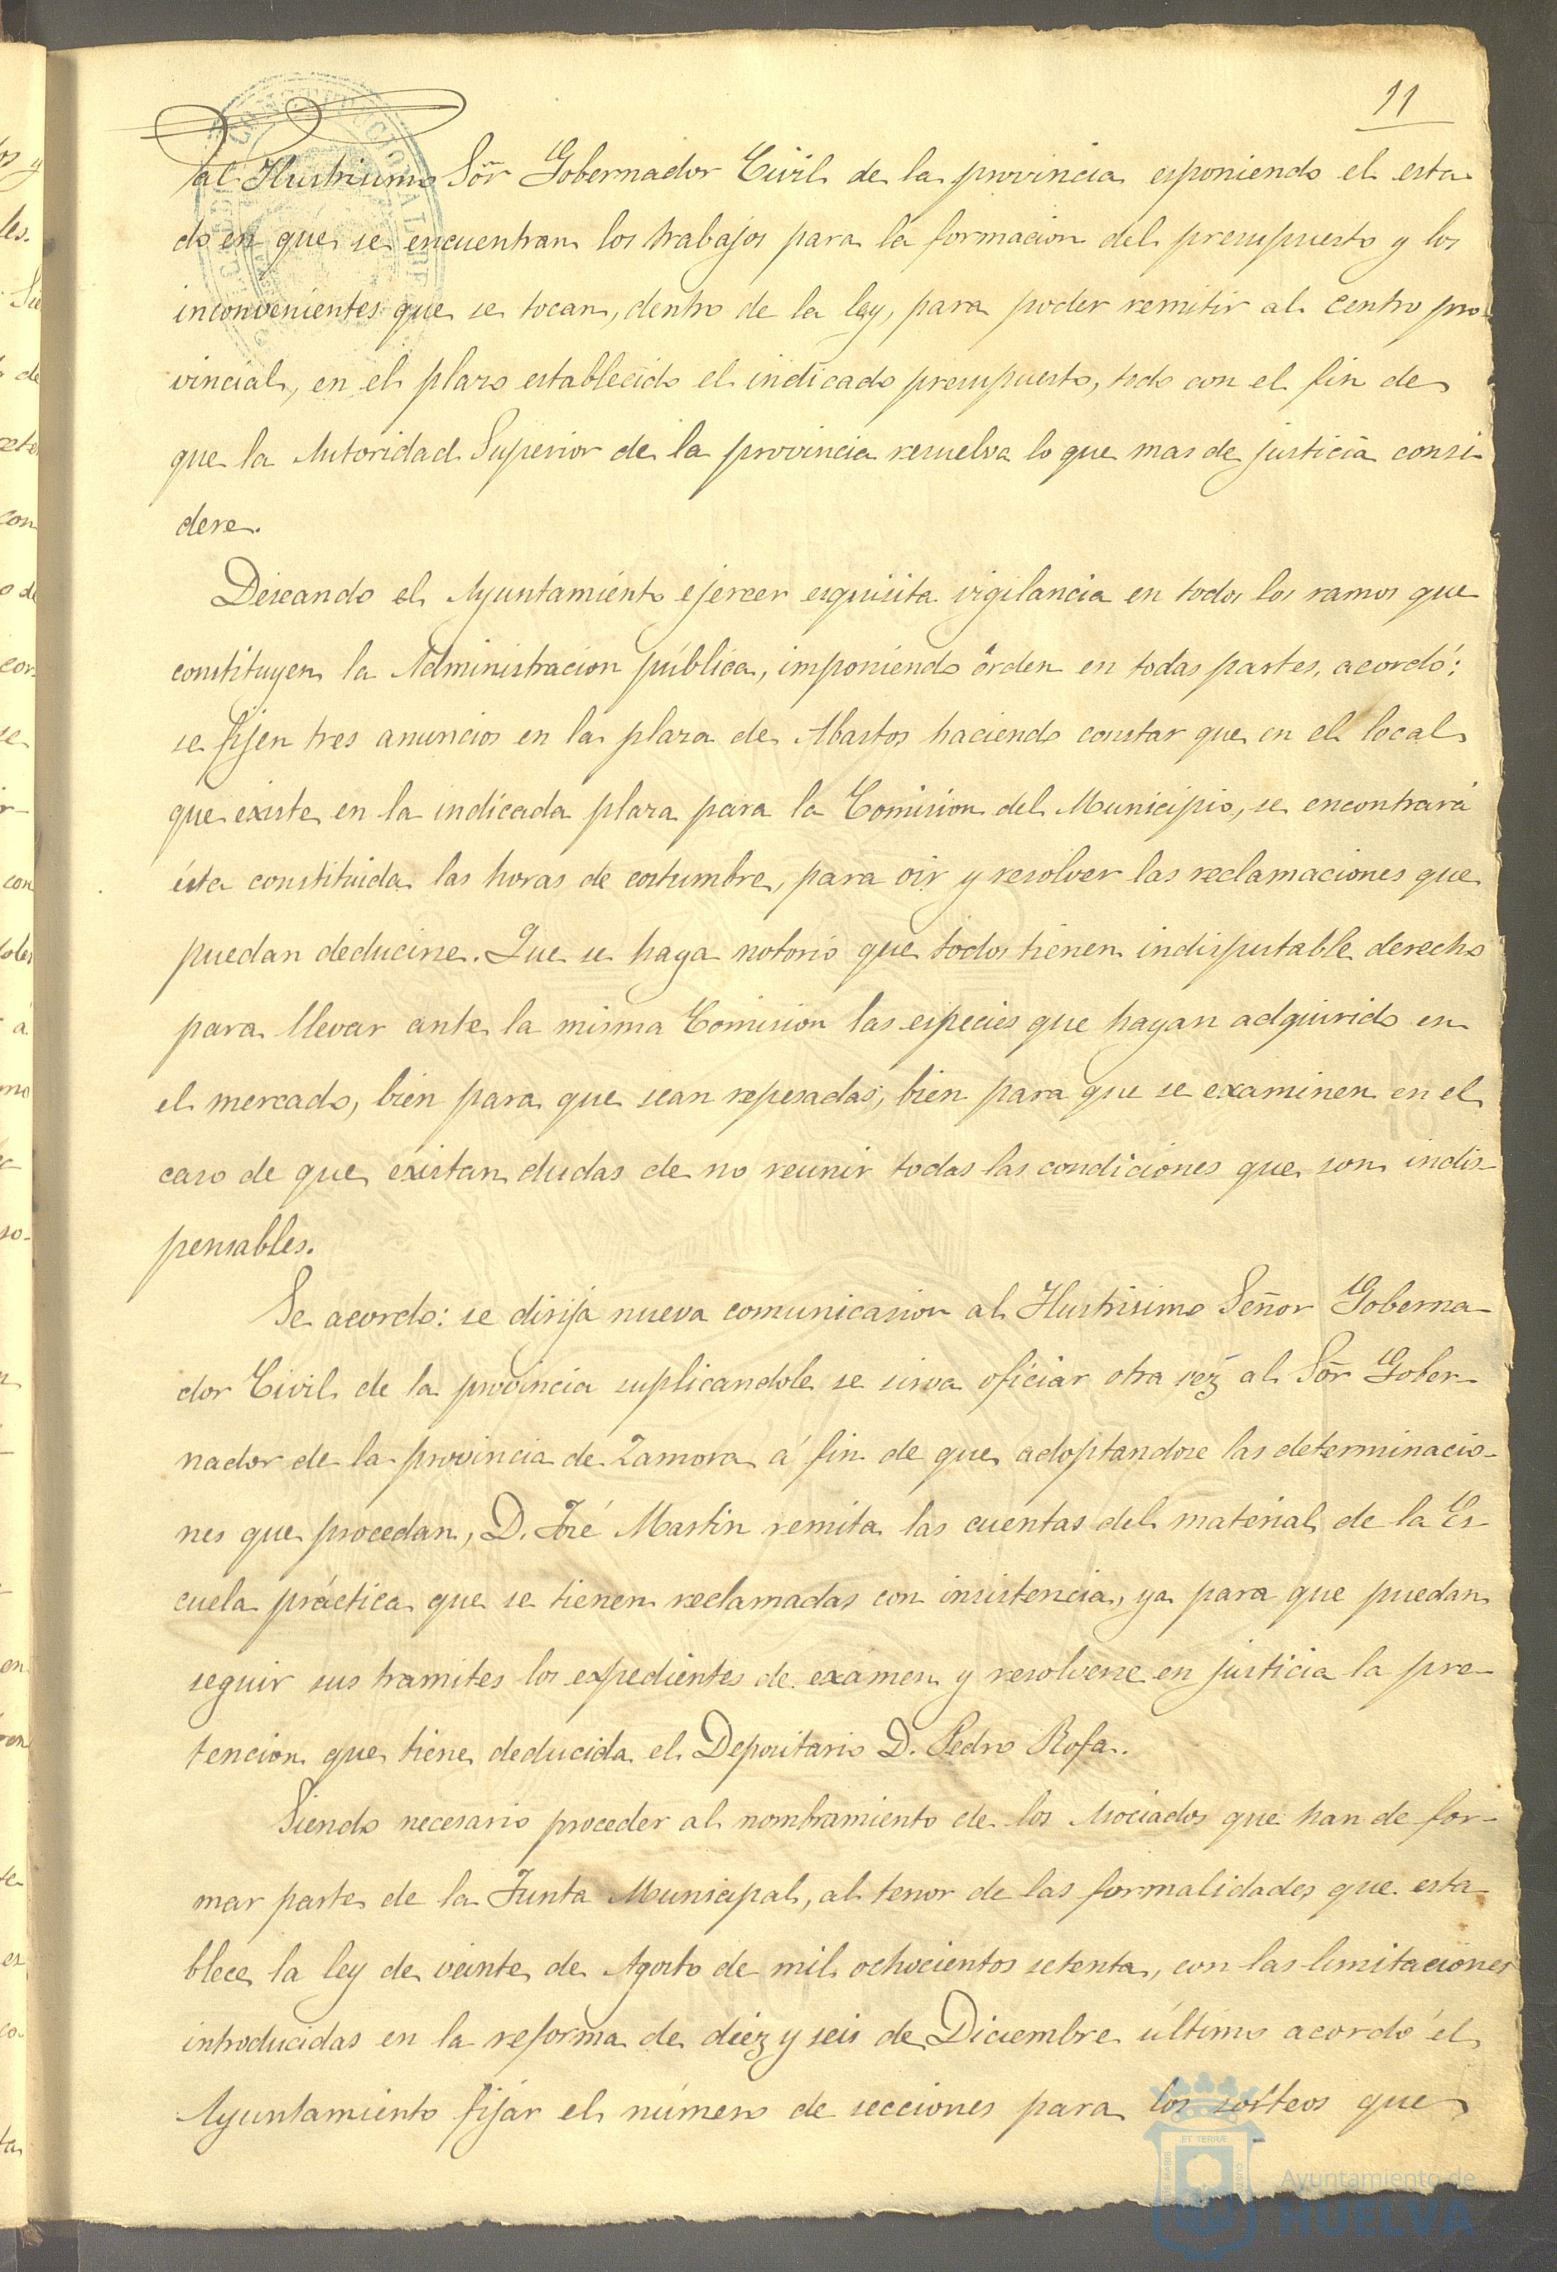 11
al Ilustrisimo Sõr Gobernador Civil de la provincia esponiendo el esta
do en que se encuentran los trabajos para la formacion del presupuesto y los
inconvenientes que se tocan, dentro de la ley, para poder remitir al centro pro-
vincial, en el plazo establecido el indicado presupuesto, todo con el fin de
que la Autoridad Superior de la provincia resuelva lo que mas de justicia consi-
dere.
Deseando el Ayuntamiento ejercer esquisita vigilancia en todos los ramos que
constituyen la Administracion pública, imponiendo órden en todas partes, acordó:
se fijen tres anuncios en la plaza de Abastos haciendo constar que en el local
que existe en la indicada plaza para la Comision del Municipio, se encontrará
ésta constituida las horas de costumbre, para oir y resolver las reclamaciones que
puedan deducirse. Que se haga notorio que todos tienen indisputable derecho
para llevar ante la misma Comision las especies que hayan adquirido en
el mercado, bien para que sean repesadas, bien para que se examinen en el
caso de que existan dudas de no reunir todas las condiciones que son indis-
pensables.
Se acordo: se dirija nueva comunicasion al Ilustrisimo Señor Goberna-
dor Civil de la provincia suplicandole se sirva oficiar otra vez al Sõr Gober-
nador de la provincia de Zamora á fin de que adoptandose las determinacio-
nes que procedan, D. José Martin remita las cuentas del material de la Es-
cuela práctica que se tienen reclamadas con insistencia, ya para que puedan
seguir sus tramites los expedientes de examen y resolverse en justicia la pre-
tencion que tiene deducida el Depositario D. Pedro Rofa.
Siendo necesario proceder al nombramiento de los Asociados que han de for-
mar parte de la Junta Municipal, al tenor de las formalidades que esta-
blece la ley de veinte de Agosto de mil ochocientos setenta, con las limitaciones
introducidas en la reforma de diez y seis de Diciembre último acordó el
Ayuntamiento fijar el número de secciones para los sorteos que
Ayuntamiento de
HUELVA